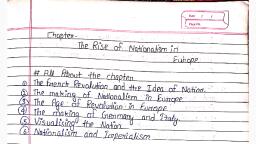 Chapter-
The Rise of Nationalism in
Europe
# All About the chapter
① The french Revolution and the Idea of Nation.
② The making of Nationalism in Europe
③ The Age of Revolution in Europe
④ The making of Germany and Italy
⑤ Visualising the Nation
⑥ Nationalism and Imperialism